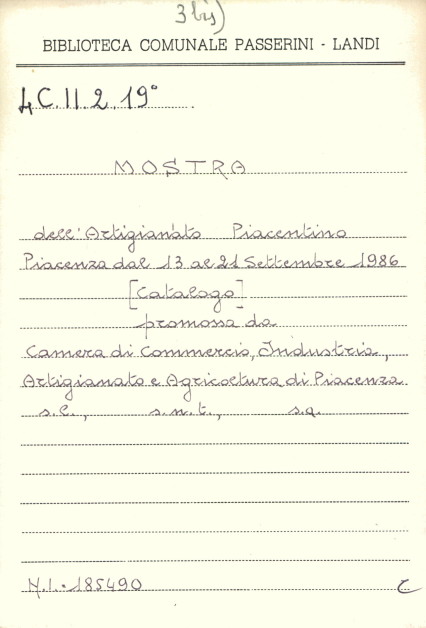 3 bis)
BIBLIOTECA COMUNALE PASSERINI - LANDI
4C.II.2.19°
MOSTRA
dell'Artigianato Piacentino
Piacenza dal 13 al 21 Settembre 1986
[Catalogo]
promossa da
Camera di Commercio, Industria,
Artigianato e Agricoltura di Piacenza
s.l., s.n.t., s.a.
N.I. - 185490 C